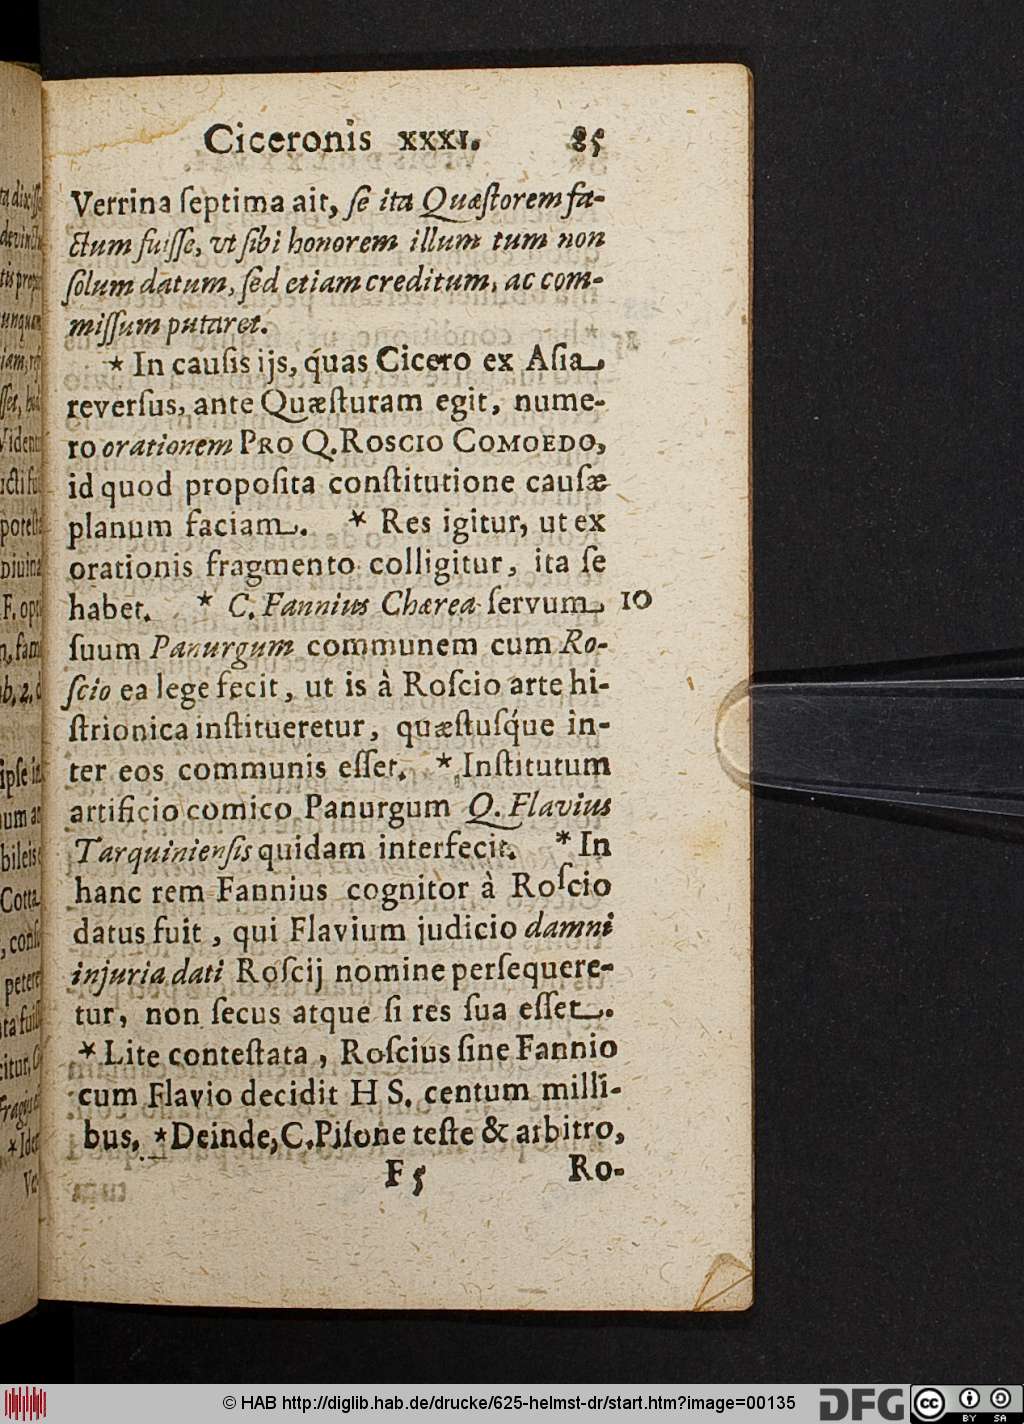 Ciceronis XXXI. 85
Verrina ſeptima ait, ſe ita Quæſtorem fa-
ctum fuiſſe, vt ſibi honorem illum tum non
ſolum datum, ſed etiam creditum, ac com-
miſſum putaret.
* In cauſis ijs, q́uas Cicero ex Aſia
reverſus, ante Quæſturam egit, nume-
ro orationem PRO Q. ROSCIO COMOEDO,
id quod propoſita conſtitutione cauſæ
planum faciam. * Res igitur, ut ex
orationis fragmento colligitur, ita ſe
habet. * C. Fannius Chærea ſervum 10
ſuum Panurgum communem cum Ro-
ſcio ea lege fecit, ut is à Roſcio arte hi-
ſtrionica inſtitueretur, quæſtuſq́ue in-
ter eos communis eſſet. * Inſtitutum
artificio comico Panurgum Q. Flavius
Tarquinienſis quidam interfecit. * In
hanc rem Fannius cognitor à Roſcio
datus fuit, qui Flavium judicio damni
injuria dati Roſcij nomine perſequere-
tur, non ſecus atque ſi res ſua eſſet.
* Lite conteſtata, Roſcius ſine Fannio
cum Flavio decidit H S. centum milli-
bus. * Deinde, C. Piſone teſte & arbitro,
F 5 Ro-
© HAB http://diglib.hab.de/drucke/625-helmst-dr/start.htm?image=00135
DFG
cc
BY SA